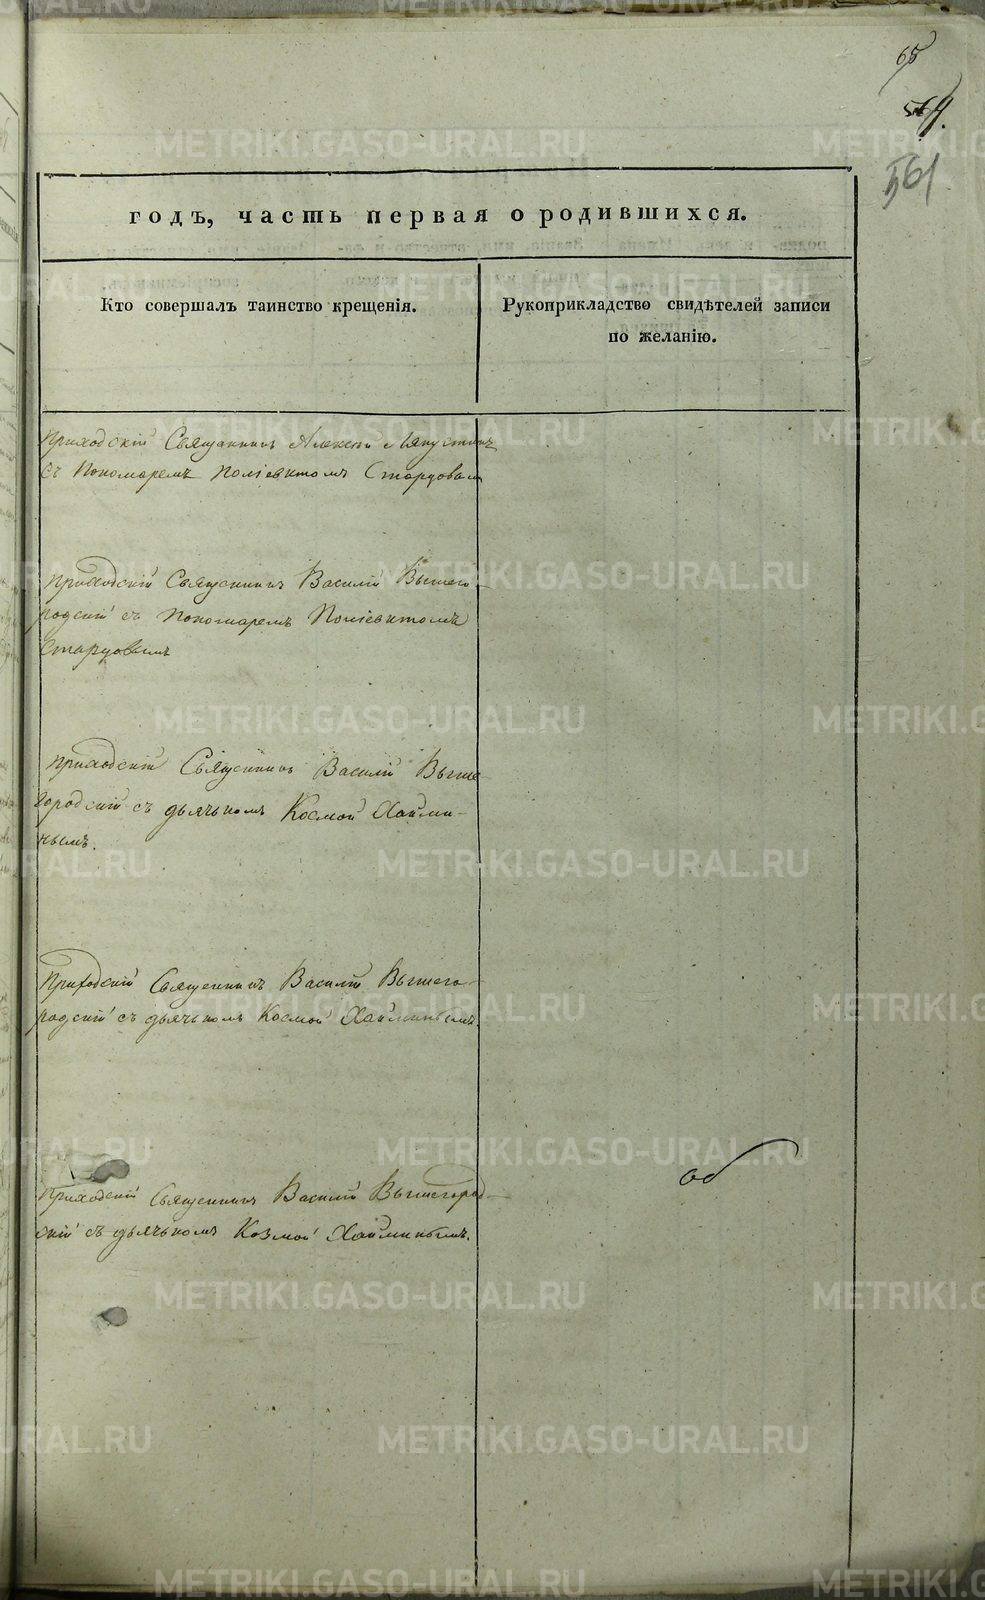 65
561
годъ, часть первая о родившихся.
Кто совершалъ таинство крещенія.
Рукоприкладство свидѣтелей записи
по желанію.
Приходскій Священникъ Алексій Ляпустинъ
съ Пономаремъ Поліевктомъ Старцовым
Приходскій Священникъ Василій Вышего-
родскій съ Пономаремъ Поліевктомъ
Старцовымъ
Приходскій Священникъ Василій Выше
городскій съ дьячькомъ Космой Хайми-
нымъ.
Приходскій Священникъ Василій Вышего-
родскій съ дьячькомъ Космой Хайминымъ.
Приходскій Священникъ Василій Вышегород-
скій съ дьячькомъ Козмой Хайминымъ.
METRIKI.GASO-URAL.RU